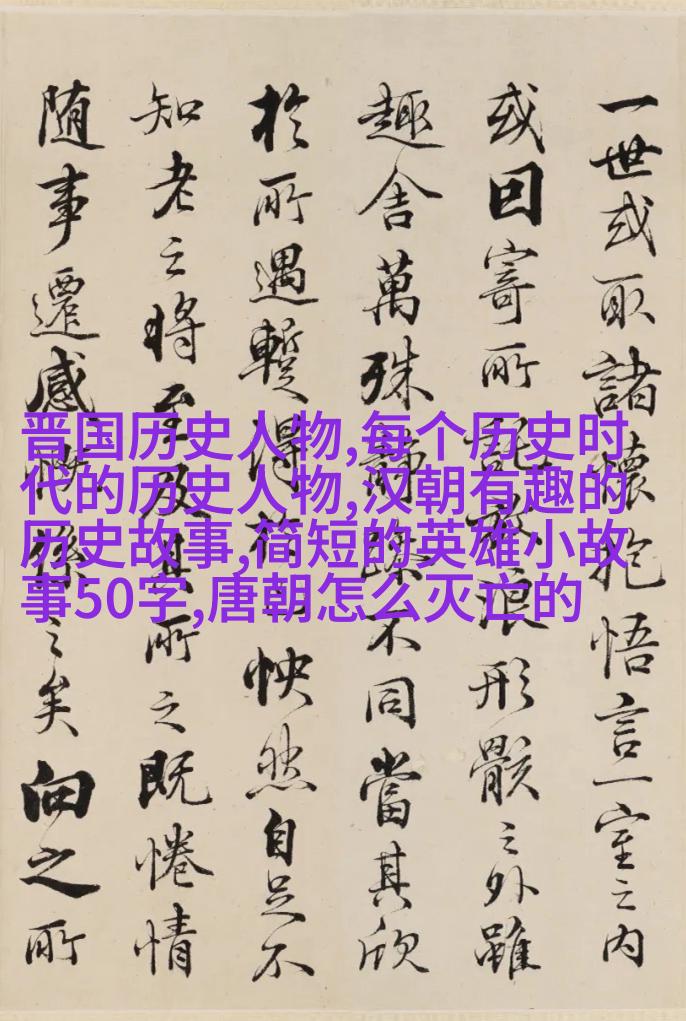 一世或取諸懷抱悟言一室之内
或因寄所託放浪形骸之外雖
趣舍萬殊靜躁不同當其欣
於所遇蹔得於己怏然自足不
知老之將至及其所之既惓情
随事遷感慨係之矣向之所
晋国历史人物,每个历史时
代的历史人物,汉朝有趣的
历史故事,简短的英雄小故
事50字,唐朝怎么灭亡的